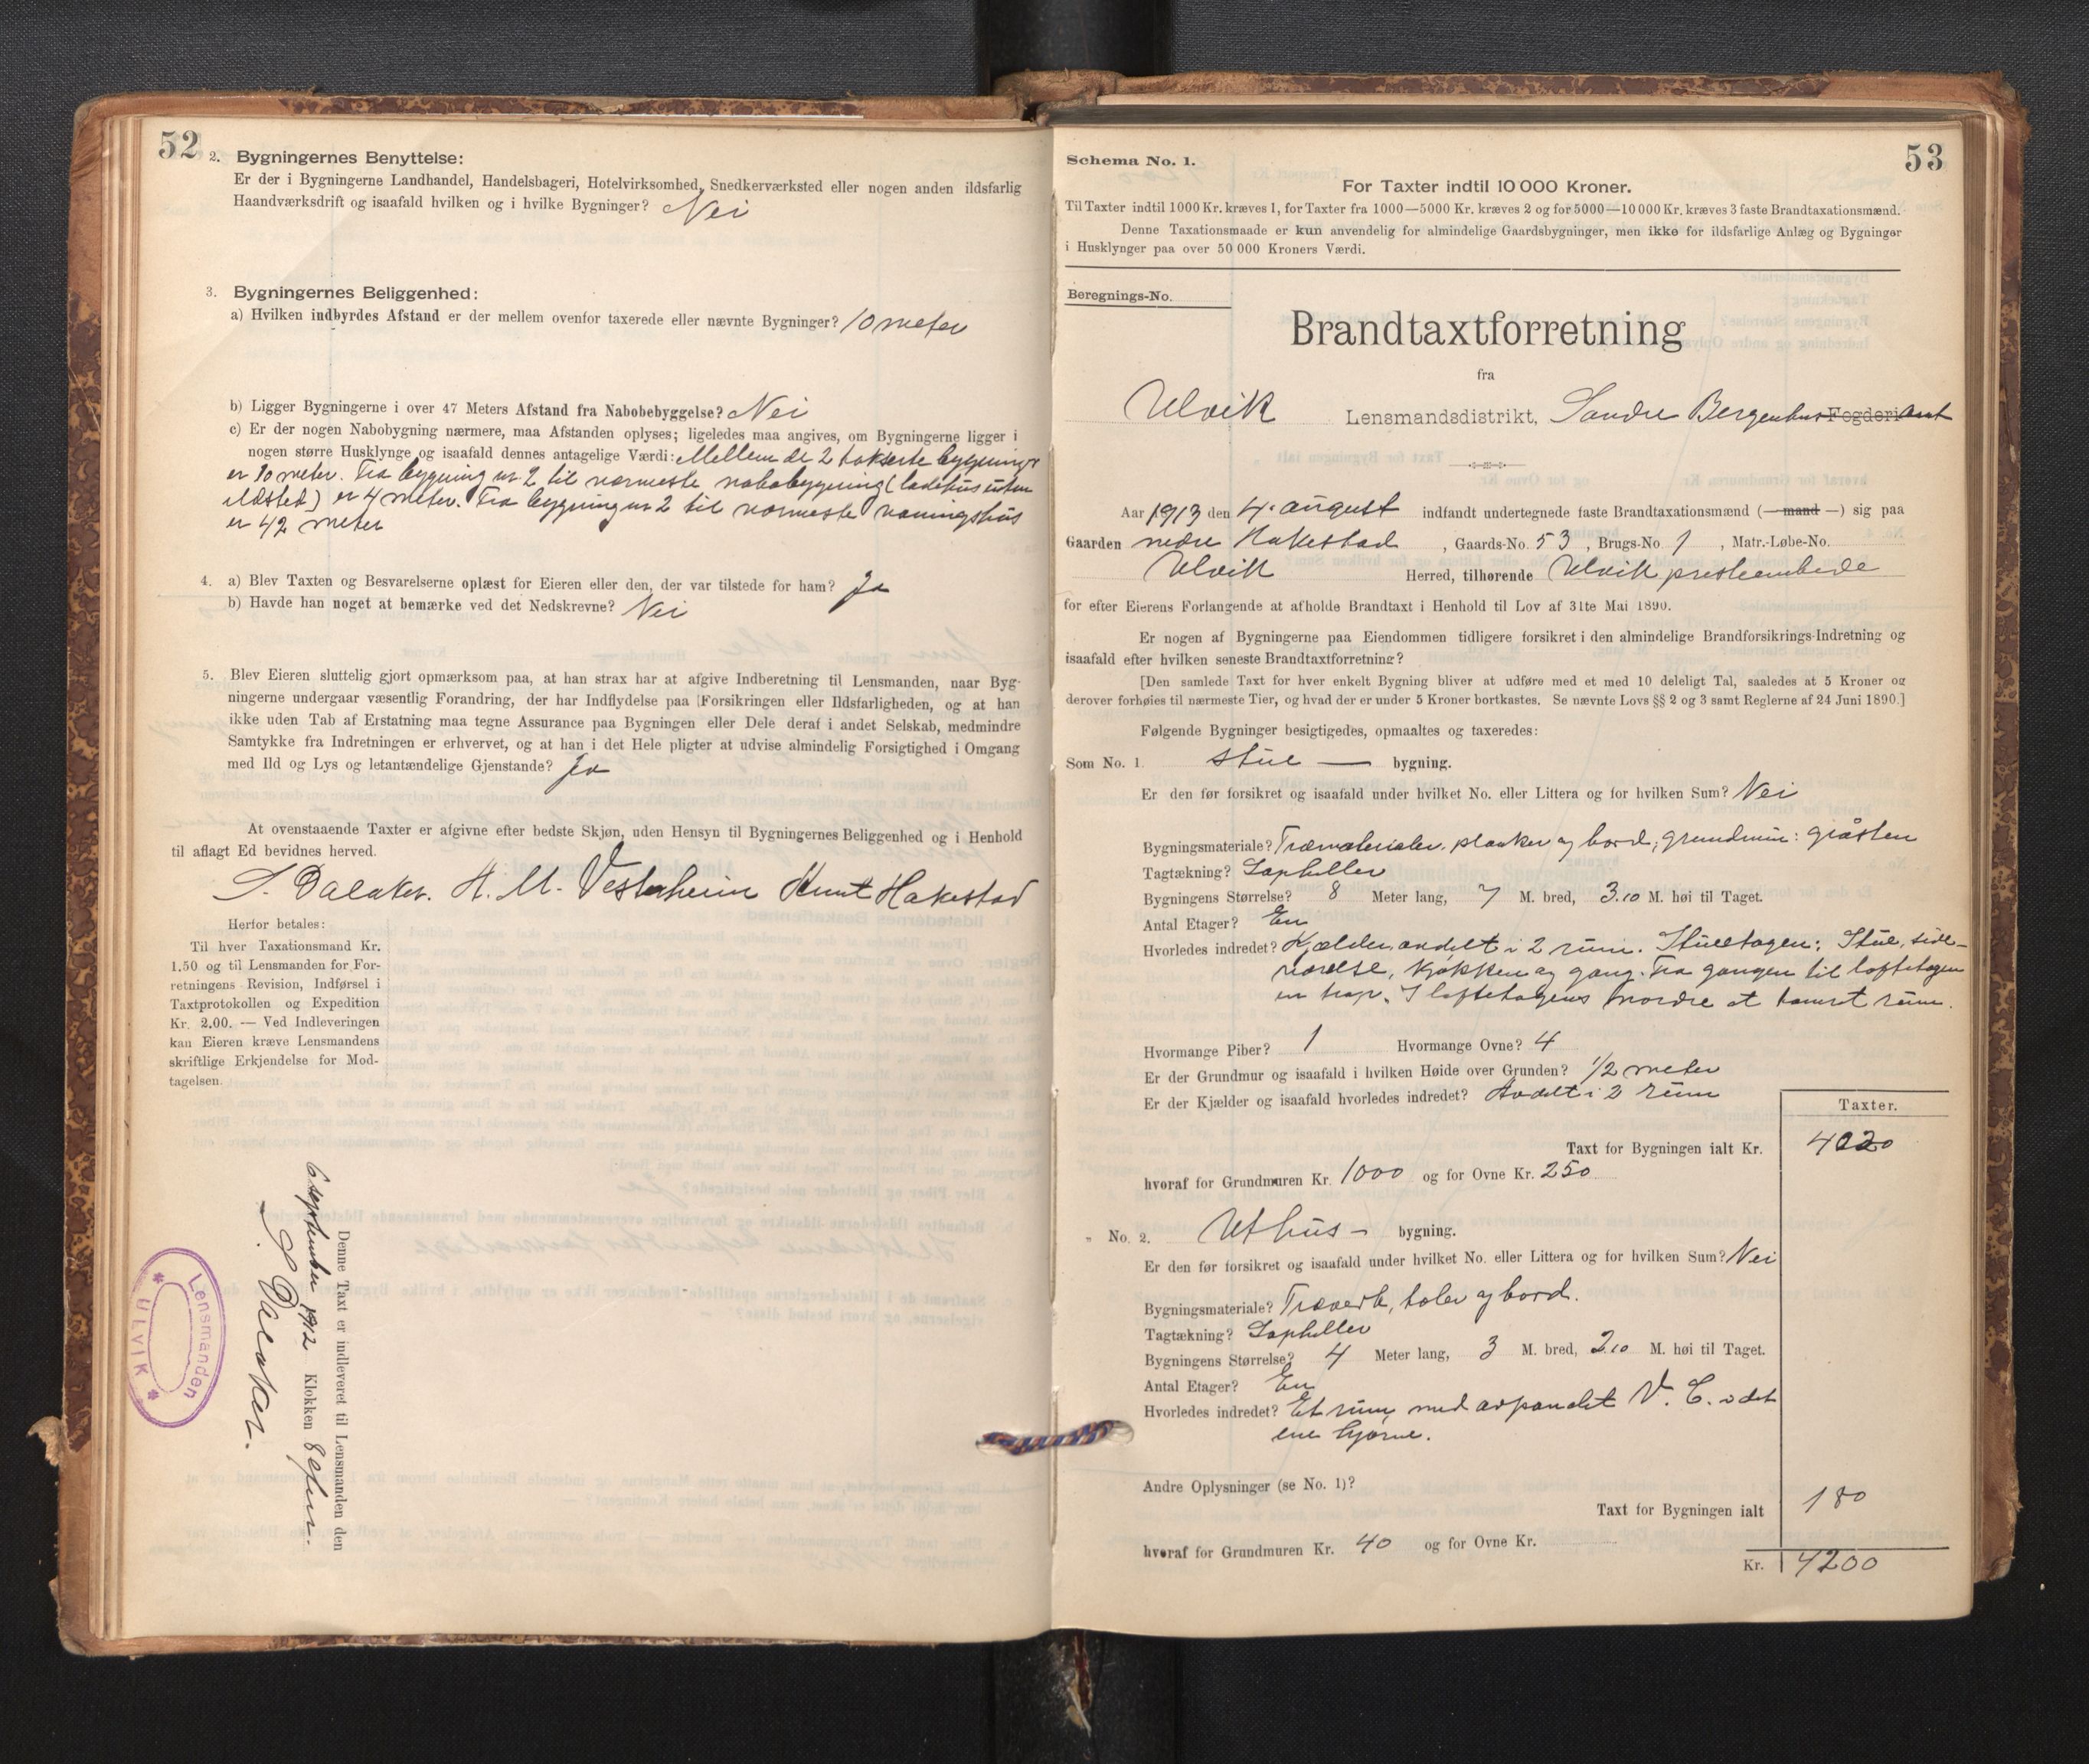 52
2. Bygningernes Benyttelse:
Er der i Bygningerne Landhandel, Handelsbageri, Hotelvirksomhed, Snedkerværksted eller nogen anden ildsfarlig
Haandværksdrift og isaafald hvilken og i hvilke Bygninger? Nei
3. Bygningernes Beliggenhed:
a) Hvilken indbyrdes Afstand er der mellem ovenfor taxerede eller nævnte Bygninger? 10 meter
b) Ligger Bygningerne i over 47 Meters Afstand fra Nabobebyggelse? Nei
c) Er der nogen Nabobygning nærmere, maa Afstanden oplyses; ligeledes maa angives, om Bygningerne ligger i
nogen større Husklynge og isaafald dennes antagelige Værdi: Mellem de 2 takserte bygninger
er 10 meter. Fra bygning nr 2 til nærmeste nabobygning (ladehus uten
ildsted) er 4 meter. Fra bygning nr 2 til nærmeste våningshus
er 42 meter
4. a) Blev Taxten og Besvarelserne oplæst for Eieren eller den, der var tilstede for ham? Ja
b) Havde han noget at bemærke ved det Nedskrevne? Nei
5. Blev Eieren sluttelig gjort opmærksom paa, at han strax har at afgive Indberetning til Lensmanden, naar Byg-
ningerne undergaar væsentlig Forandring, der har Indflydelse paa Forsikringen eller Ildsfarligheden, og at han
ikke uden Tab af Erstatning maa tegne Assurance paa Bygningen eller Dele deraf i andet Selskab, medmindre
Samtykke fra Indretningen er erhvervet, og at han i det Hele pligter at udvise almindelig Forsigtighed i Omgang
med Ild og Lys og letantændelige Gjenstande? Ja
At ovenstaaende Taxter er afgivne efter bedste Skjøn, uden Hensyn til Bygningernes Beliggenhed og i Henhold
til aflagt Ed bevidnes herved.
S. Dalaker. H. M. Vestrheim Knut Hakestad
Herfor betales:
Til hver Taxationsmand Kr.
1.50 og til Lensmanden for For-
retningens Revision, Indførsel i
Taxtprotokollen og Expedition
Kr. 2.00. — Ved Indleveringen
kan Eieren kræve Lensmandens
skriftlige Erkjendelse for Mod-
tagelsen.
Denne Taxt er indleveret til Lensmanden den
6 september 1912 Klokken 8 efterm.
S Dalaker.
Lensmanden
* ULVIK *
53
Schema No. 1.
For Taxter indtil 10 000 Kroner.
Til Taxter indtil 1000 Kr. kræves 1, for Taxter fra 1000—5000 Kr. kræves 2 og for 5000—10 000 Kr. kræves 3 faste Brandtaxationsmænd.
Denne Taxationsmaade er kun anvendelig for almindelige Gaardsbygninger, men ikke for ildsfarlige Anlæg og Bygninger
i Husklynger paa over 50 000 Kroners Værdi.
Beregnings-No.
Brandtaxtforretning
fra
Ulvik Lensmandsdistrikt, Søndre Bergenhus Fogderi amt
Aar 1913 den 4. august indfandt undertegnede faste Brandtaxationsmænd (— mand —) sig paa
Gaarden nedre Hakestad, Gaards-No. 53, Brugs-No. 1, Matr.-Løbe-No.
Ulvik Herred, tilhørende Ulvik presteembede
for efter Eierens Forlangende at afholde Brandtaxt i Henhold til Lov af 31te Mai 1890.
Er nogen af Bygningerne paa Eiendommen tidligere forsikret i den almindelige Brandforsikrings-Indretning og
isaafald efter hvilken seneste Brandtaxtforretning?
[Den samlede Taxt for hver enkelt Bygning bliver at udføre med et med 10 deleligt Tal, saaledes at 5 Kroner og
derover forhøies til nærmeste Tier, og hvad der er under 5 Kroner bortkastes. Se nævnte Lovs §§ 2 og 3 samt Reglerne af 24 Juni 1890.]
Følgende Bygninger besigtigedes, opmaaltes og taxeredes:
Som No. 1. stue — bygning.
Er den før forsikret og isaafald under hvilket No. eller Littera og for hvilken Sum? Nei
Bygningsmateriale? Træmaterialer, planker og bord, grundmur: gråsten
Tagtækning? Saphiller
Bygningens Størrelse? 8 Meter lang, 7 M. bred, 3.10 M. høi til Taget.
Antal Etager? En
Hvorledes indredet? Kjælder avdelt i 2 rum. Stueetagen: Stue, side-
værelse, kjøkken og gang. Fra gangen til loftetagen
en trap. I loftetagens nordre et tømret rum.
Hvormange Piber? 1 Hvormange Ovne? 4
Er der Grundmur og isaafald i hvilken Høide over Grunden? 1/2 meter
Er der Kjælder og isaafald hvorledes indredet? Avdelt i 2 rum
Taxter.
Taxt for Bygningen ialt Kr. 4020
hvoraf for Grundmuren Kr. 1000 og for Ovne Kr. 250
„ No. 2. Uthus — bygning.
Er den før forsikret og isaafald under hvilket No. eller Littera og for hvilken Sum? Nei
Bygningsmateriale? Træverk, toler og bord.
Tagtækning? Saphiller
Bygningens Størrelse? 4 Meter lang, 3 M. bred, 2.10 M. høi til Taget.
Antal Etager? En
Hvorledes indredet? Et rum, med avpanelet V. C. i det
ene hjørne.
Andre Oplysninger (se No. 1)?
Taxt for Bygningen ialt 180
hvoraf for Grundmuren Kr. 40 og for Ovne Kr.
Kr. 4200